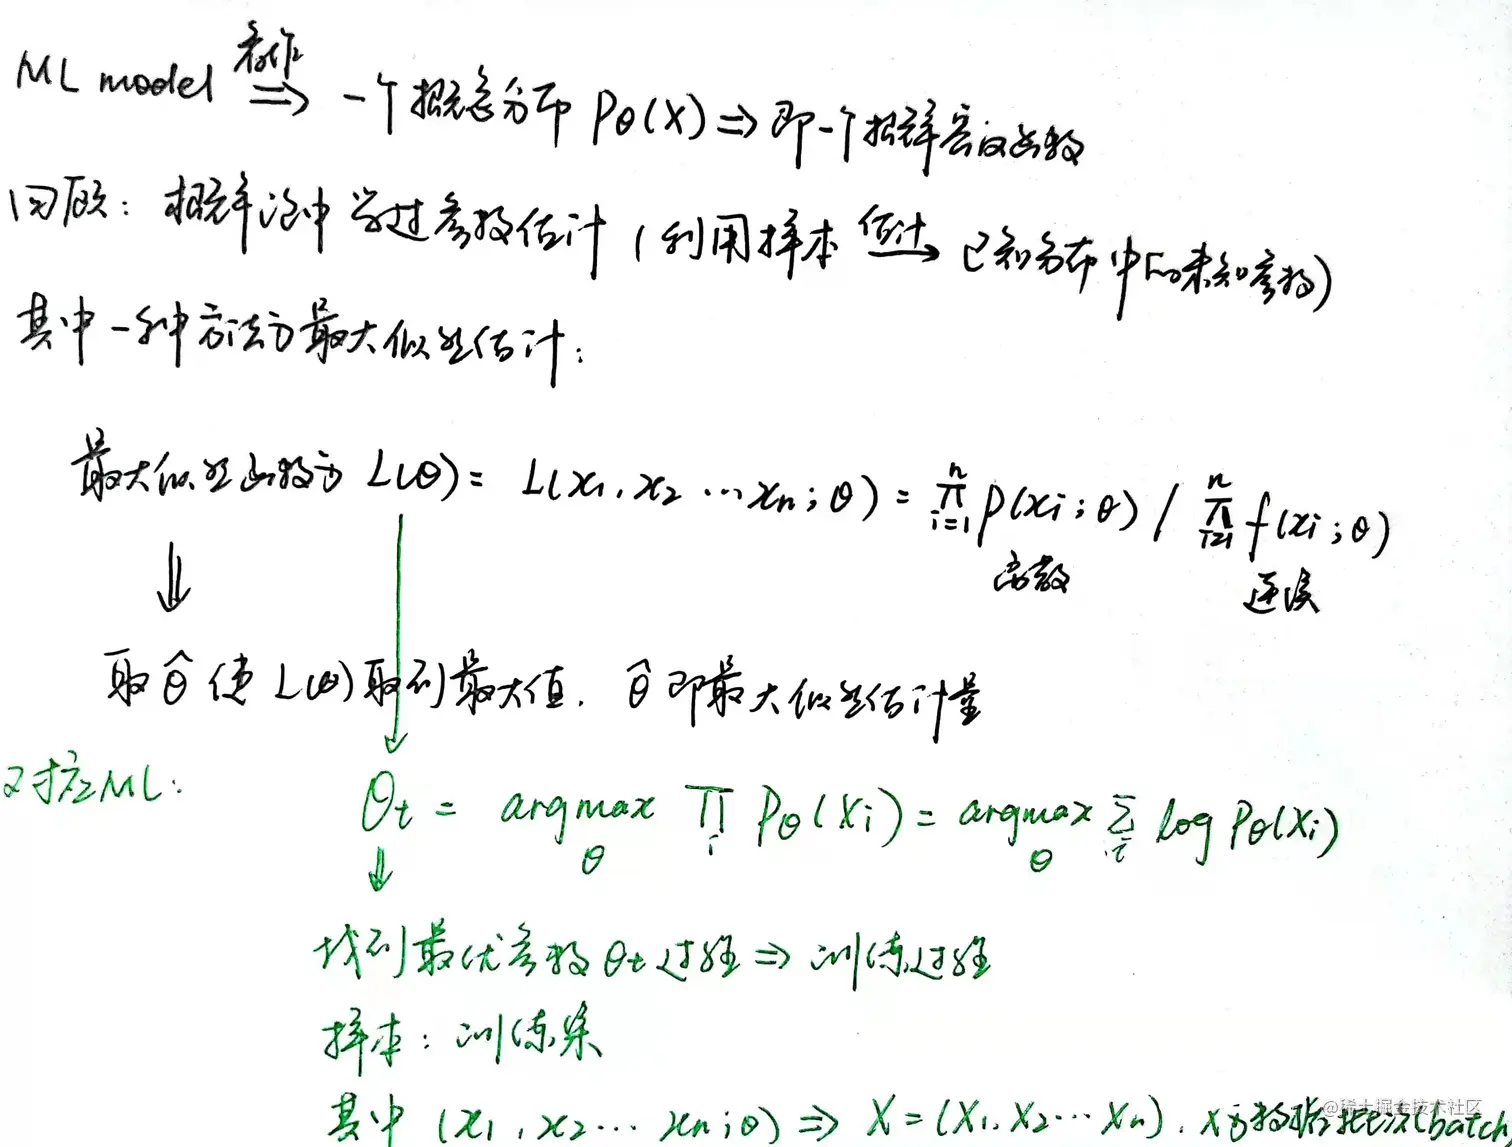 ML model 看作⇒ 一个概率分布 Pθ(X) ⇒ 即一个概率密度函数
回顾：概率论中学过参数估计（利用样本 估计→ 已知分布中的未知参数）
其中一种方法为最大似然估计：
最大似然函数为 L(θ) = L(x₁, x₂ … xₙ; θ) = ∏ᵢ₌₁ⁿ p(xᵢ; θ) / ∏ᵢ₌₁ⁿ f(xᵢ; θ)
离散 连续
⇓
取 θ̂ 使 L(θ) 取到最大值. θ̂ 即最大似然估计量
对应ML: θt = argmax θ ∏ᵢ Pθ(Xᵢ) = argmax θ Σᵢ log Pθ(Xᵢ)
⇓
找到最优参数 θt 过程 ⇒ 训练过程
样本：训练集
其中 (x₁, x₂ … xₙ; θ) ⇒ X = (X₁, X₂ … Xₙ). X为数据批次(batch
@稀土掘金技术社区